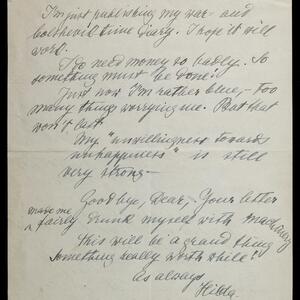 I'm just publishing my war- and
bolshevik time Diary. I hope it will
work.
I do need money so badly. So
something must be done!
Just now I'm rather blue,- too
many things worrying me. But that
won't last.
My "unwillingness towards
unhappiness" is still
very strong —
Goodby, Dear,- Your letter
made me
fairly drunk myself with machinery
This will be a grand thing
Something really worth while!
As always
Hilda